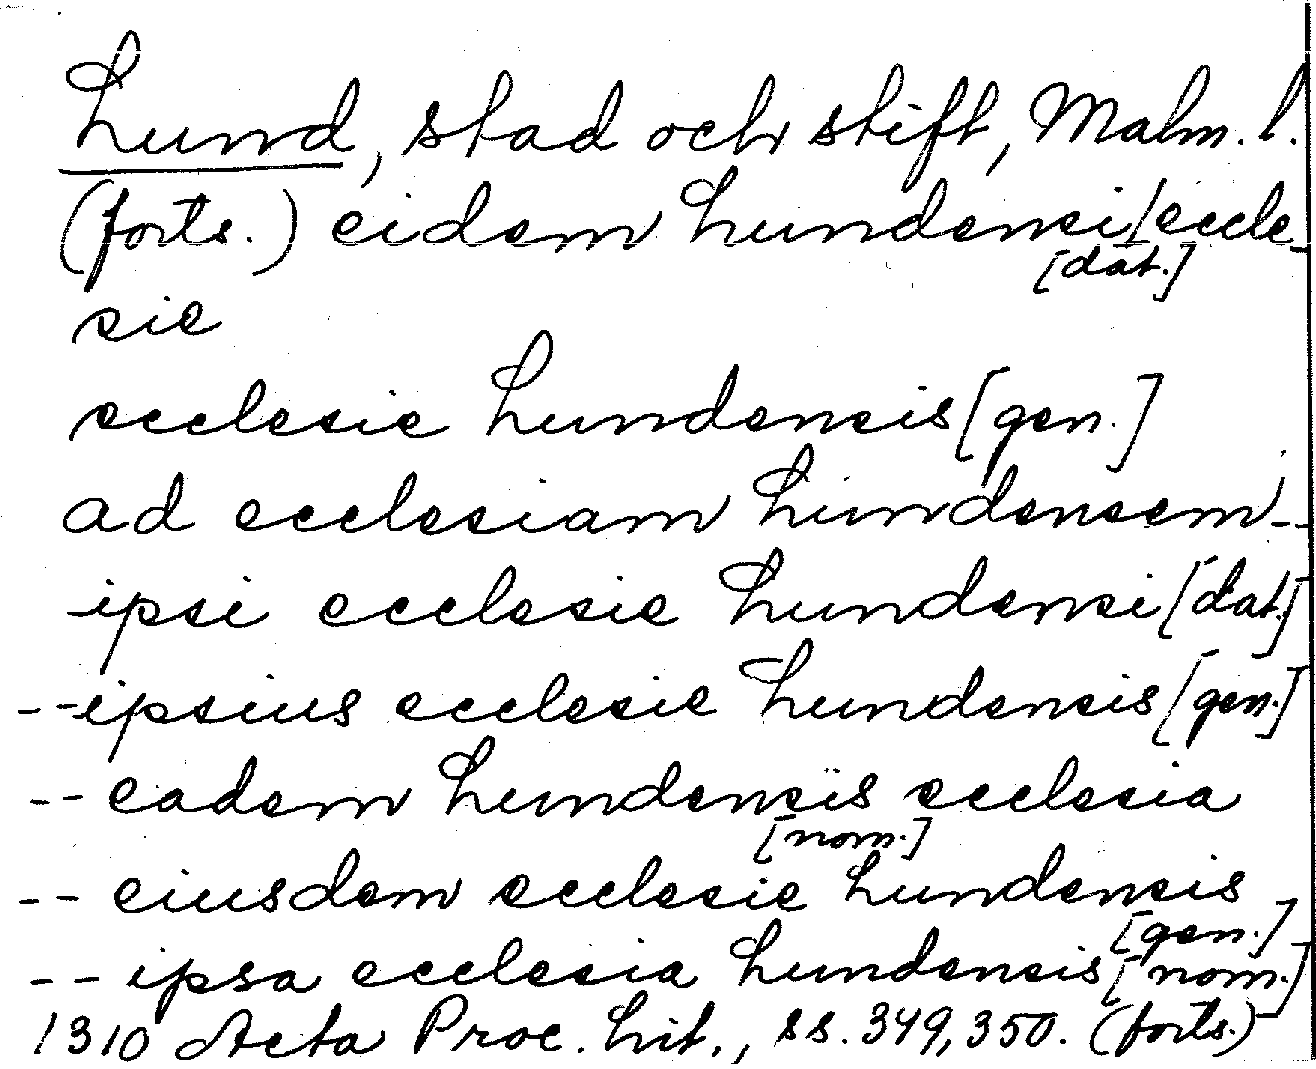 Lund, stad och stift, Malm. l.
(forts.) eidem Lundensi/eccle-
[dat.]
sie
ecclesie Lundensis [gen.]
ad ecclesiam Lundensem --
ipsi ecclesie Lundensi [dat.]
-- ipsius ecclesie Lundensis [gen.]
-- eadem Lundensis ecclesia
[nom.]
-- eiusdem ecclesie Lundensis
[gen.]
-- ipsa ecclesia Lundensis [nom.]
1310 Acta Proc. Lit., ss. 349, 350. (forts.)